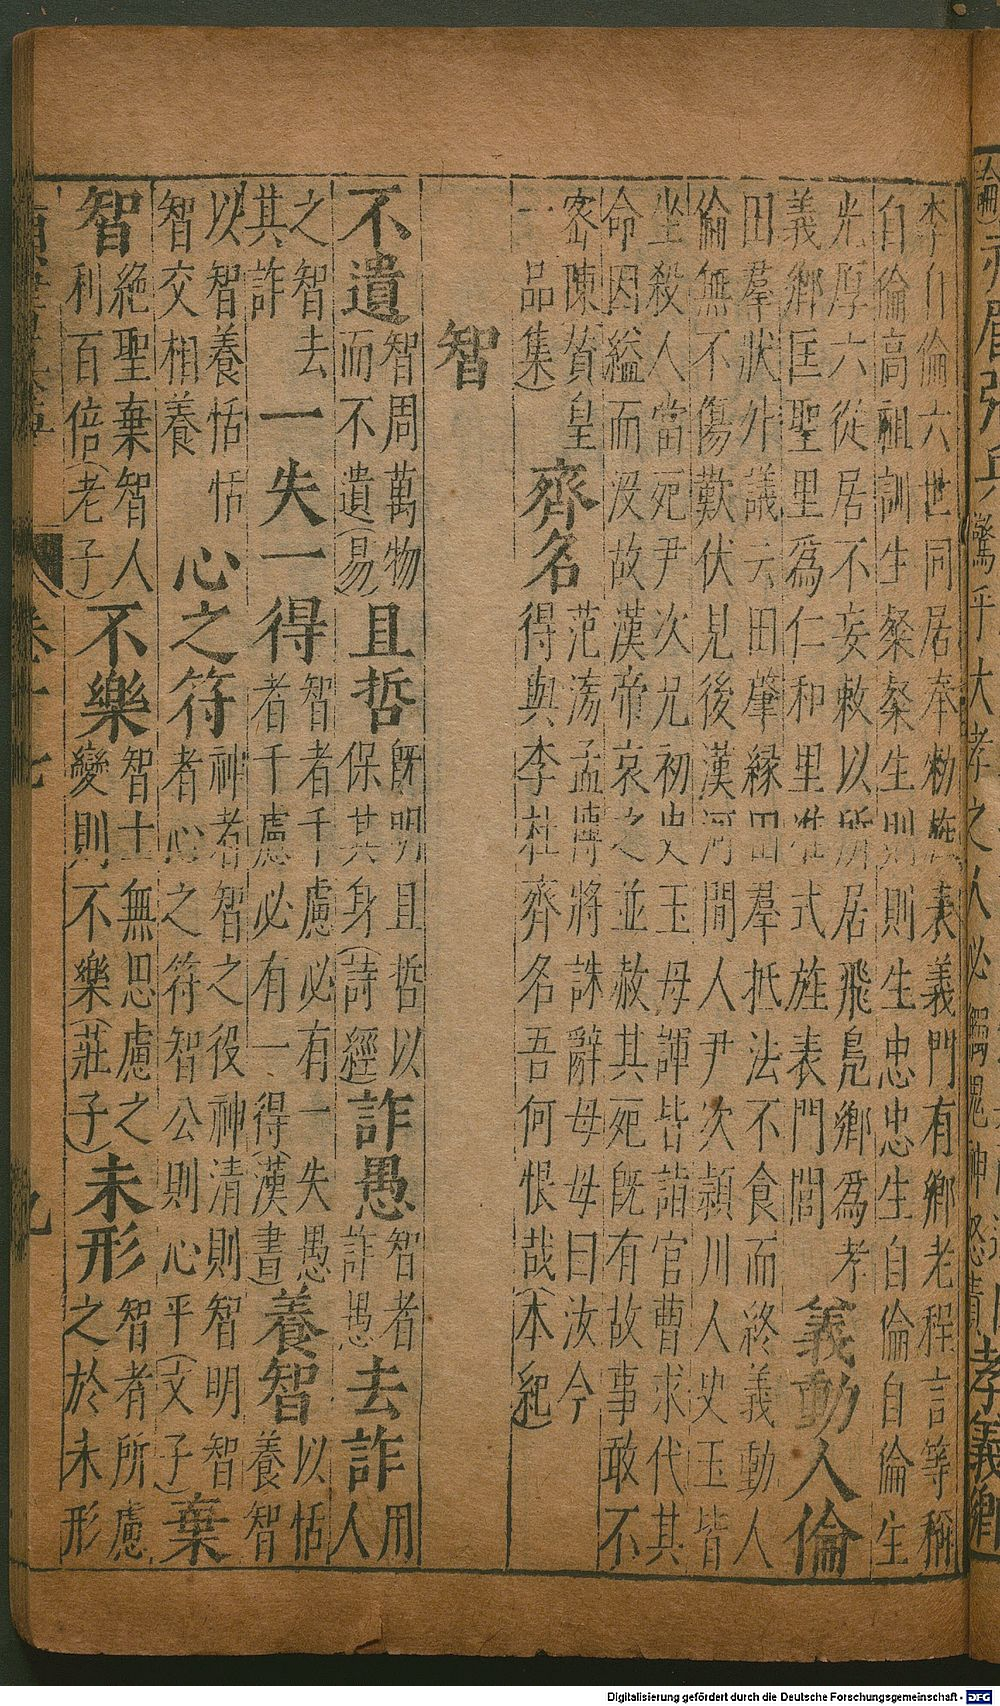 驚乎大孝之人必
孝義鄉
李自倫六世同居奉勑旌表義門有鄉老程言等稱
自倫高祖訓生粲粲生則則生忠忠生自倫自倫生
光厚六從居不妄敕以所居飛鳧鄉爲孝
義鄉匡聖里爲仁和里准式旌表門閭
義動人倫
田羣狀外議云田肇緣田羣抵法不食而終義動人
倫無不傷歎伏見後漢河間人尹次潁川人史玉皆
坐殺人當死尹次兄初史玉母諢皆詣官曹求代其
命因縊而没故漢帝哀之並赦其死旣有故事敢不
密陳(贊皇
一品集)
齊名
范滂孟博將誅辭母母曰汝今
得與李杜齊名吾何恨哉(本紀)
智
不遺
智周萬物
而不遺(易)
且哲
旣明且哲以
保其身(詩經)
詐愚
智者
詐愚
去詐
用
人
之智去
其詐
一失一得
智者千慮必有一失愚
者千慮必有一得(漢書)
養智
以恬
養智
以智養恬恬
智交相養
心之符
神者智之役神清則智明智
者心之符智公則心平(文子)
棄
智
絕聖棄智人
利百倍(老子)
不樂
智士無思慮之
變則不樂(莊子)
未形
智者所慮
之於未形
卷十七
九
Digitalisierung gefördert durch die Deutsche Forschungsgemeinschaft - DFG